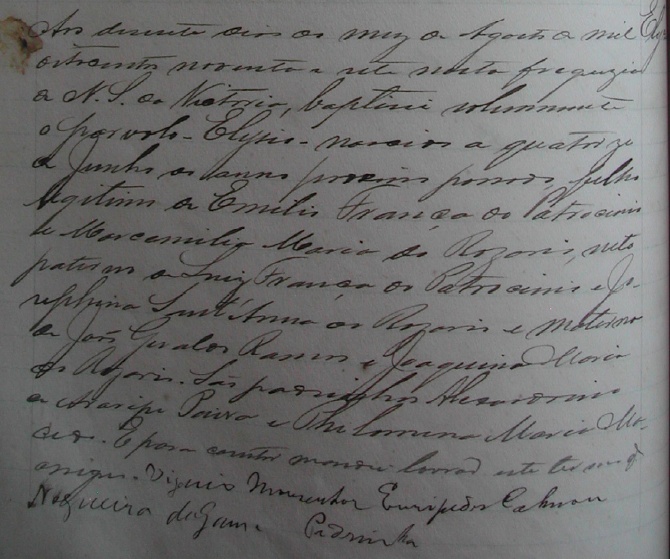 Aos desesete dias do mez de Agosto de mil Ely
oitocentos noventa e sete nesta freguezia
de N. S. da Victoria, baptisei solemnemente
o parvolo - Elysio - nascido a quatorze
de Junho do anno proximo passado, filho
legitimo de Emilio França do Patrocinio
e Marcemilia Maria do Rozario, neto
paterno de Luiz França do Patrocinio e Jo-
sephina Sant'Anna do Rozario e materno
de João Geraldo Ramos e Joaquina Maria
do Rozario. São padrinhos Alexandrino
de Araripe Paiva e Philomena Maria Ma-
cedo. E para constar mandei lavrar este termo q
assigno. Vigario Monsenhor Euripedes Calmon
Nogueira da Gama Pedrinha